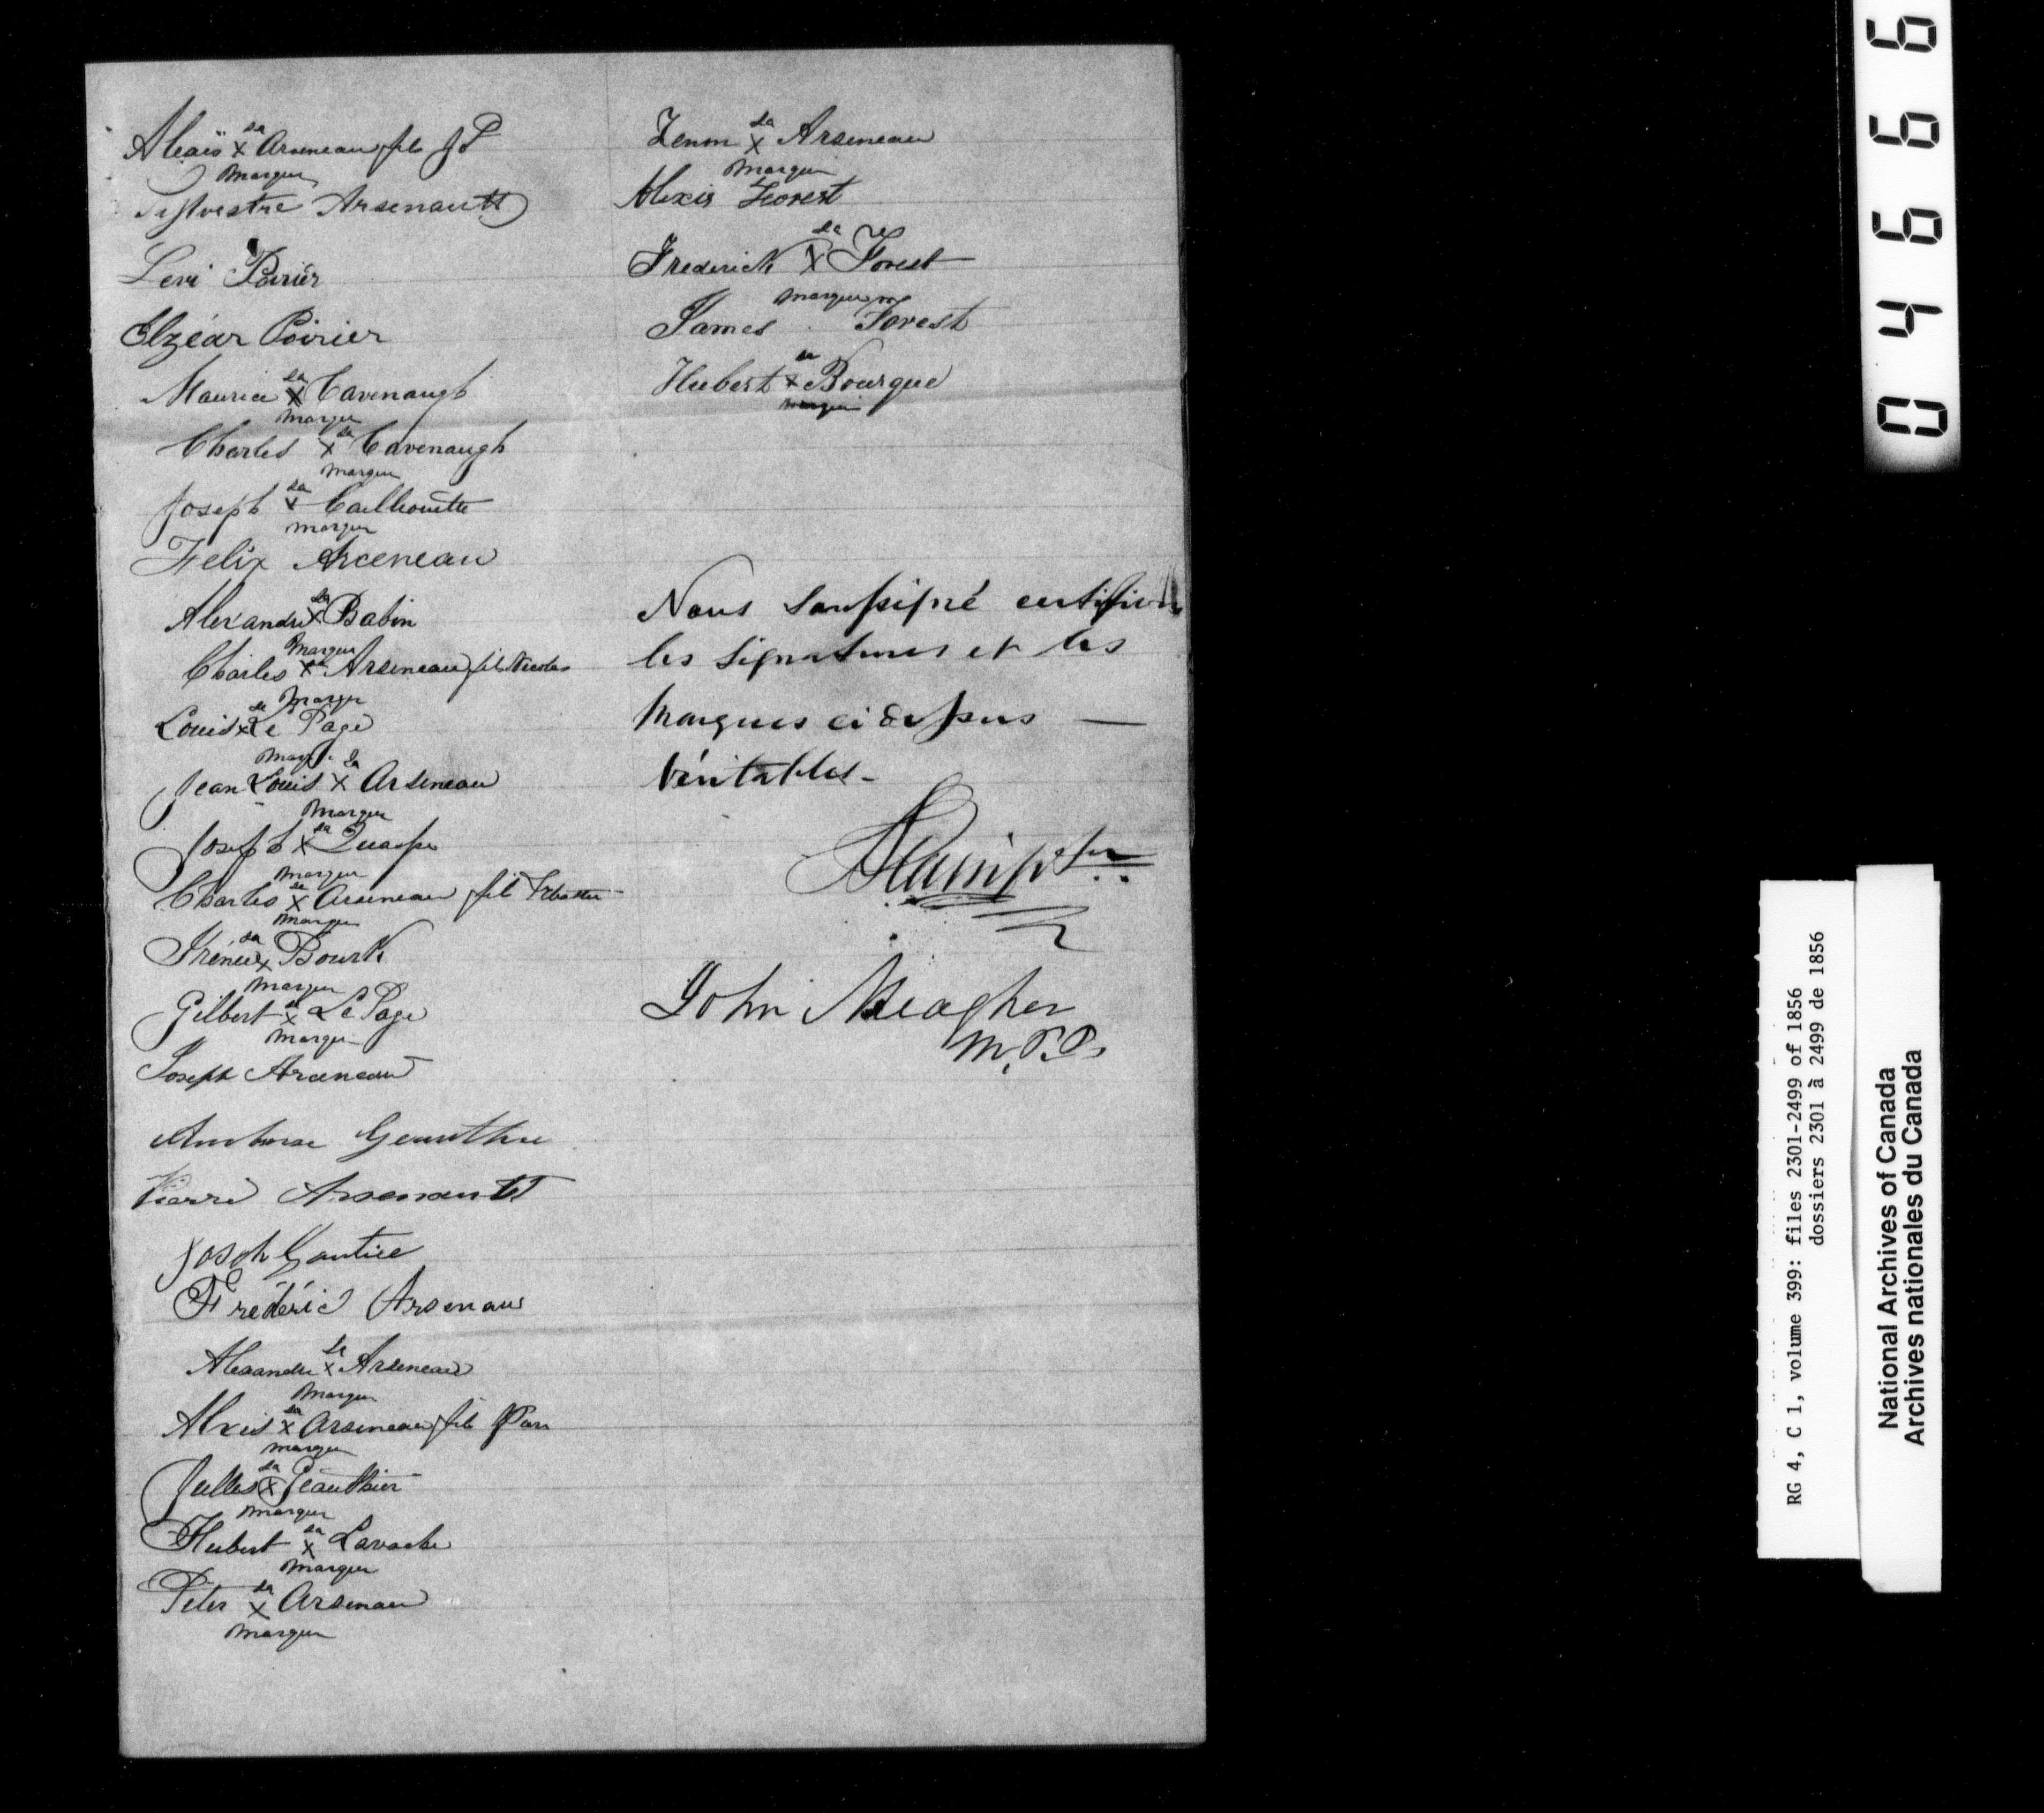 Alexis sa x Arseneau fils J P
marque
Sylvestre Arsenault
Levi Poirier
Elzéar Poirier
Maurice sa x Cavenaugh
marque
Charles sa x Cavenaugh
marque
Joseph sa x Cailhouette
marque
Felix Arceneau
Alexandre sa x Babin
marque
Charles sa x Arseneau fils Nicolas
marque
Louis sa x Le Page
marque
Jean Louis sa x Arseneau
marque
Joseph sa x
marque
Charles sa x Arseneau fils
marque
Irénée sa x Bourk
marque
Gilbert sa x LePage
marque
Joseph Arceneau
Ambroise Geauthier
Pierre Arsenault
Josph Gautier
Frédéric Arsenau
Alexandre sa x Arseneau
marque
Alexis sa x Arseneau fils
marque
Julles sa x Geauthier
marque
Hubert sa x Lavache
marque
Peter sa x Arsenau
marque
Zenon sa x Arseneau
marque
Alexis Forest
Frederick sa X Forest
marque
James Forest
Hubert sa x Bourque
marque
Nous soussigné certifions
les signatures et les
marques ci dessus —
véritables -
John Meagher
M.P.P.
04666
RG 4, C 1, volume 399: files 2301-2499 of 1856
dossiers 2301 à 2499 de 1856
National Archives of Canada
Archives nationales du Canada